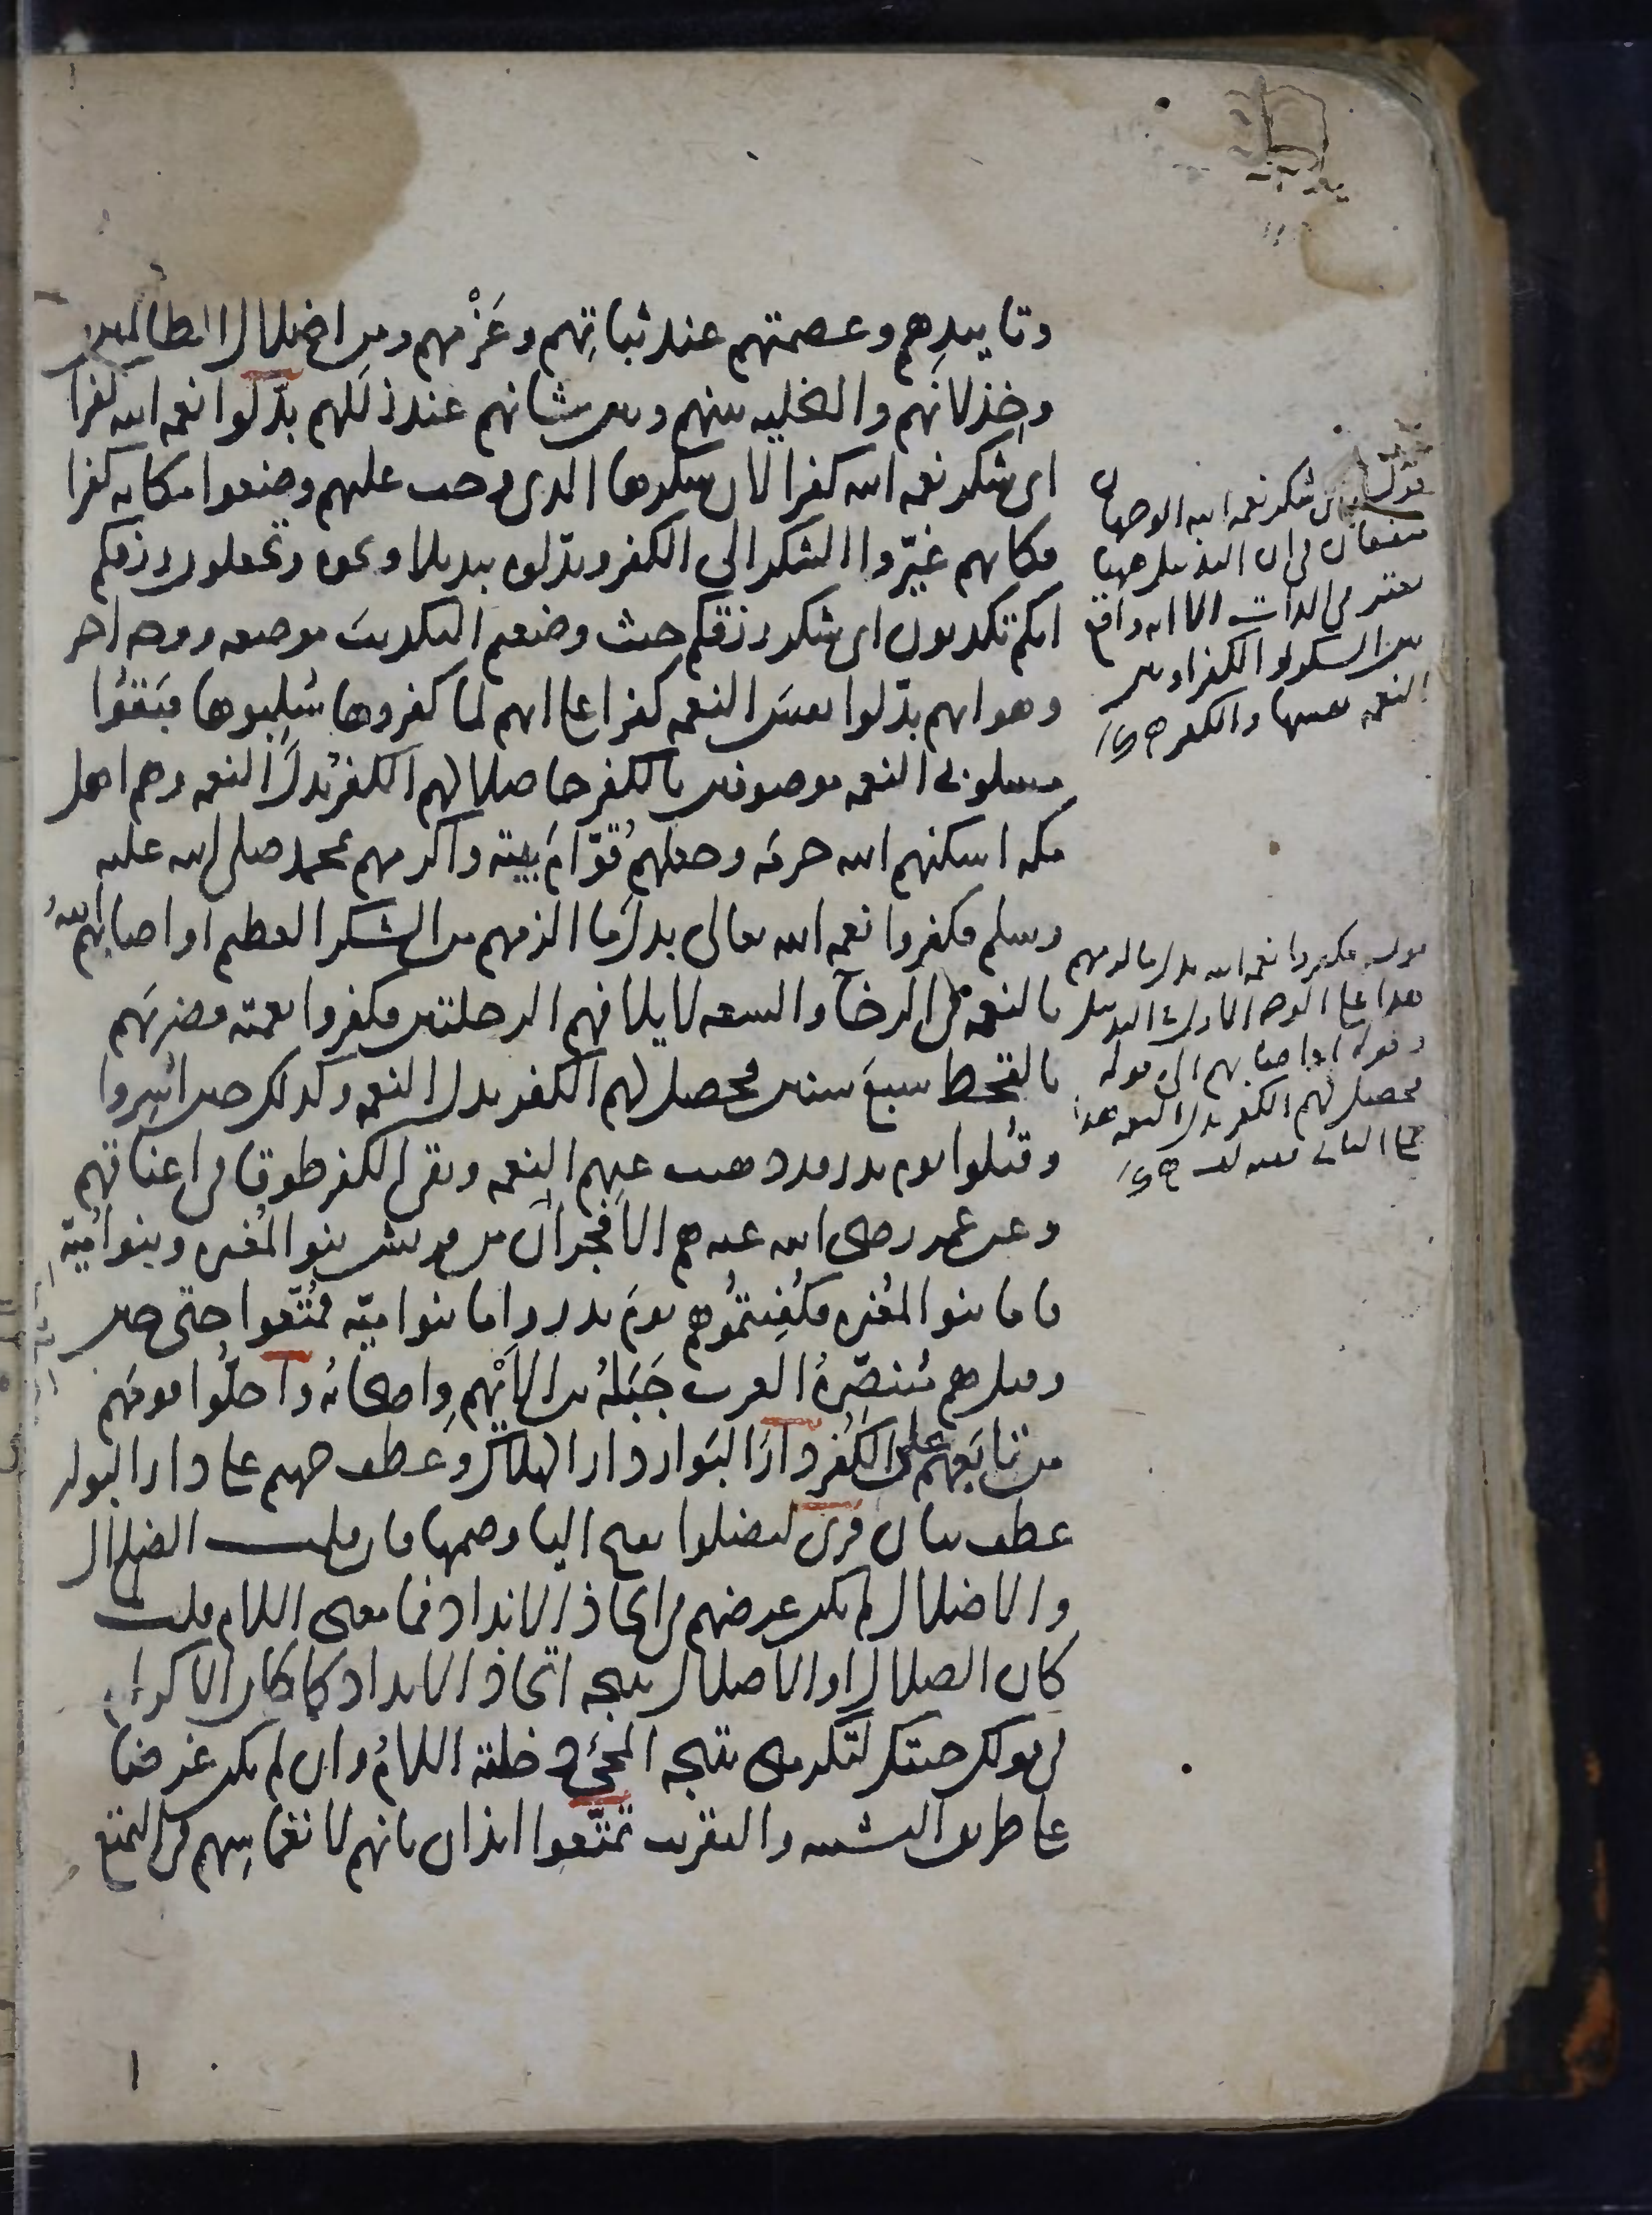 وتاييدهم وعصمتهم عند ثباتهم وعزمهم ومن اضلال الظالمين
وخذلانهم والتخليه بينهم وبين شانهم عند زللهم بدّلوا نعمه الله كفرا
اى شكر نعمه الله كفرا لان شكرها الذى وجب عليهم وضعوا مكانه كفرا
فكانهم غيّروا الشكر الى الكفر وبدّلوه تبديلا ونحوه وتجعلون رزقكم
انكم تكذبون اى شكر رزقكم حيث وضعتم التكذيب موضعه ووجه اخر
وهو انهم بدّلوا نفس النعمه كفرا على انهم لما كفروها سُلِبوها فبَقُوا
مسلوبى النعمه موصوفين بالكفر حاصلا لهم الكفر بدل النعمه وهم اهل
مكه اسكنهم الله حرمَه وجعلهم قُوّامَ بيته واكرمهم بمحمد صلى الله عليه
وسلم فكفروا نعمه الله تعالى بدل ما الزمهم من الشكر العظيم او اصابهم اللهُ
بالنعمه فى الرخآ والسعه لايلافهم الرحلتين فكفروا نعمته فضربَهم
بالقحط سبعَ سنين فحصل لهم الكفر بدل النعمه وكذلك حين اُسِروا
وقُتلوا يوم بدر وقد ذهبت عنهم النعمه وبقى الكفر طوقا فى اعناقهم
وعن عمر رضى الله عنه هم الافجران من قريش بنو المُغيره وبنو اُميّة
فاما بنو المُغيره فكُفِيتُمُوهم يومَ بدر واما بنو اميّه فمُتّعوا حتى حين
وقيل هم مُتنصّرةُ العرب جَبَلهُ بن الاَيْهمِ واصحابُه واحلّوا قومَهم
من تابَعهم على الكُفر دارَ البَوار دار الهلاك وعطف جهنم على دار البوار
عطف بيان قرى ليضلوا بفتح اليا وضمها فان قلت الضلال
والاضلال لم يكن غرضهم فى اتخاذ الانداد فما معنى اللام قلت
كان الضلال او الاضلال نتيجه اتخاذ الانداد كما كان الاكرام
فى قولك جئتك لتكرمنى نتيجه المجئ دخلته اللامُ وان لم يكن غرضا
على طريق التشبيه والتقريب تمتّعوا ايذان بانهم لانغماسِهم فى التمتع
قوله اى شكر نعمه الله الوجهان
متفقان فى ان التبديل ههنا
معتبر فى الذات الا انه واقع
بين الشكر والكفر او بين
النعمه نفسها والكفر
قوله فكفروا نعمه الله بدل ما الزمهم
هذا على الوجه الاول فى التبديل
وقوله او اصابهم الى قوله
فحصل لهم الكفر بدل النعمه هذا
على الثانى
١